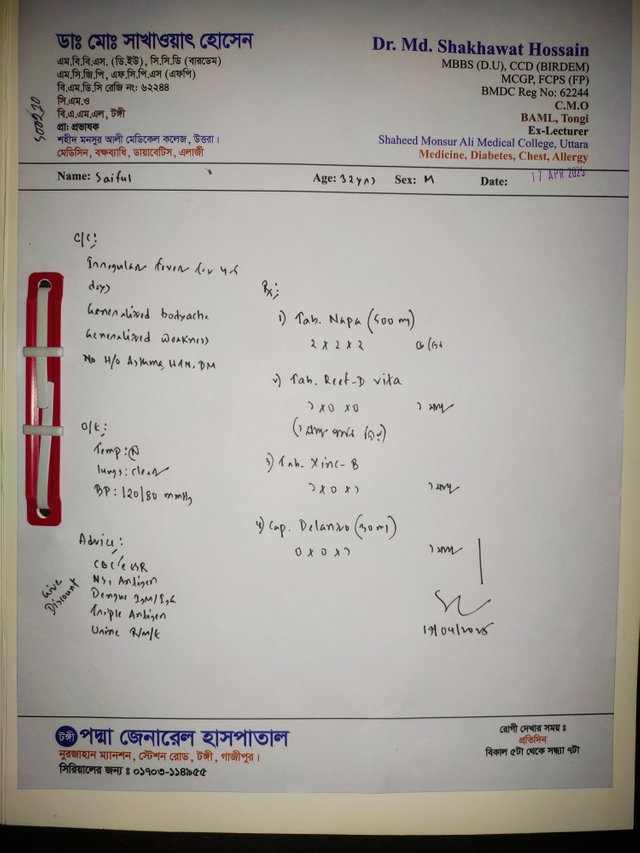 ডাঃ মোঃ সাখাওয়াৎ হোসেন
এম.বি.বি.এস. (ডি.ইউ), সি.সি.ডি (বারডেম)
এম.সি.জি.পি, এফ.সি.পি.এস (এফপি)
বি.এম.ডি.সি রেজি নং: ৬২২৪৪
সি.এম.ও
বি.এ.এম.এল, টঙ্গী
প্রা: প্রভাষক
শহীদ মনসুর আলী মেডিকেল কলেজ, উত্তরা।
মেডিসিন, বক্ষব্যাধি, ডায়াবেটিস, এলার্জী
Dr. Md. Shakhawat Hossain
MBBS (D.U), CCD (BIRDEM)
MCGP, FCPS (FP)
BMDC Reg No: 62244
C.M.O
BAML, Tongi
Ex-Lecturer
Shaheed Monsur Ali Medical College, Uttara
Medicine, Diabetes, Chest, Allergy
Name: Saiful Age: 32 yrs Sex: M Date: 17 APR 2025
C/C:
Irregular fever for 4-5
days
Generalized bodyache
Generalized weakness
No H/O Asthma, HTN, DM
O/E:
Temp: N
lungs: clear
BP: 120/80 mmHg
Advice:
CBC e ESR
NS1 Antigen
Dengue IgM/IgG
Triple Antigen
Urine R/M/E
Give
Discount
Rx:
১) Tab. Napa (500 mg)
২ x ২ x ২
২) Tab. Reef-D vita
১ x ০ x ০
৩) Tab. Xinc-B
১ x ০ x ১
৪) Cap. Delanxo (30 mg)
০ x ০ x ১
17/04/2025
টঙ্গী পদ্মা জেনারেল হাসপাতাল
নুরজাহান ম্যানশন, স্টেশন রোড, টঙ্গী, গাজীপুর।
সিরিয়ালের জন্য : ০১৭০৩-১১৪৯৫৫
রোগী দেখার সময় :
প্রতিদিন
বিকাল ৫টা থেকে সন্ধ্যা ৭টা